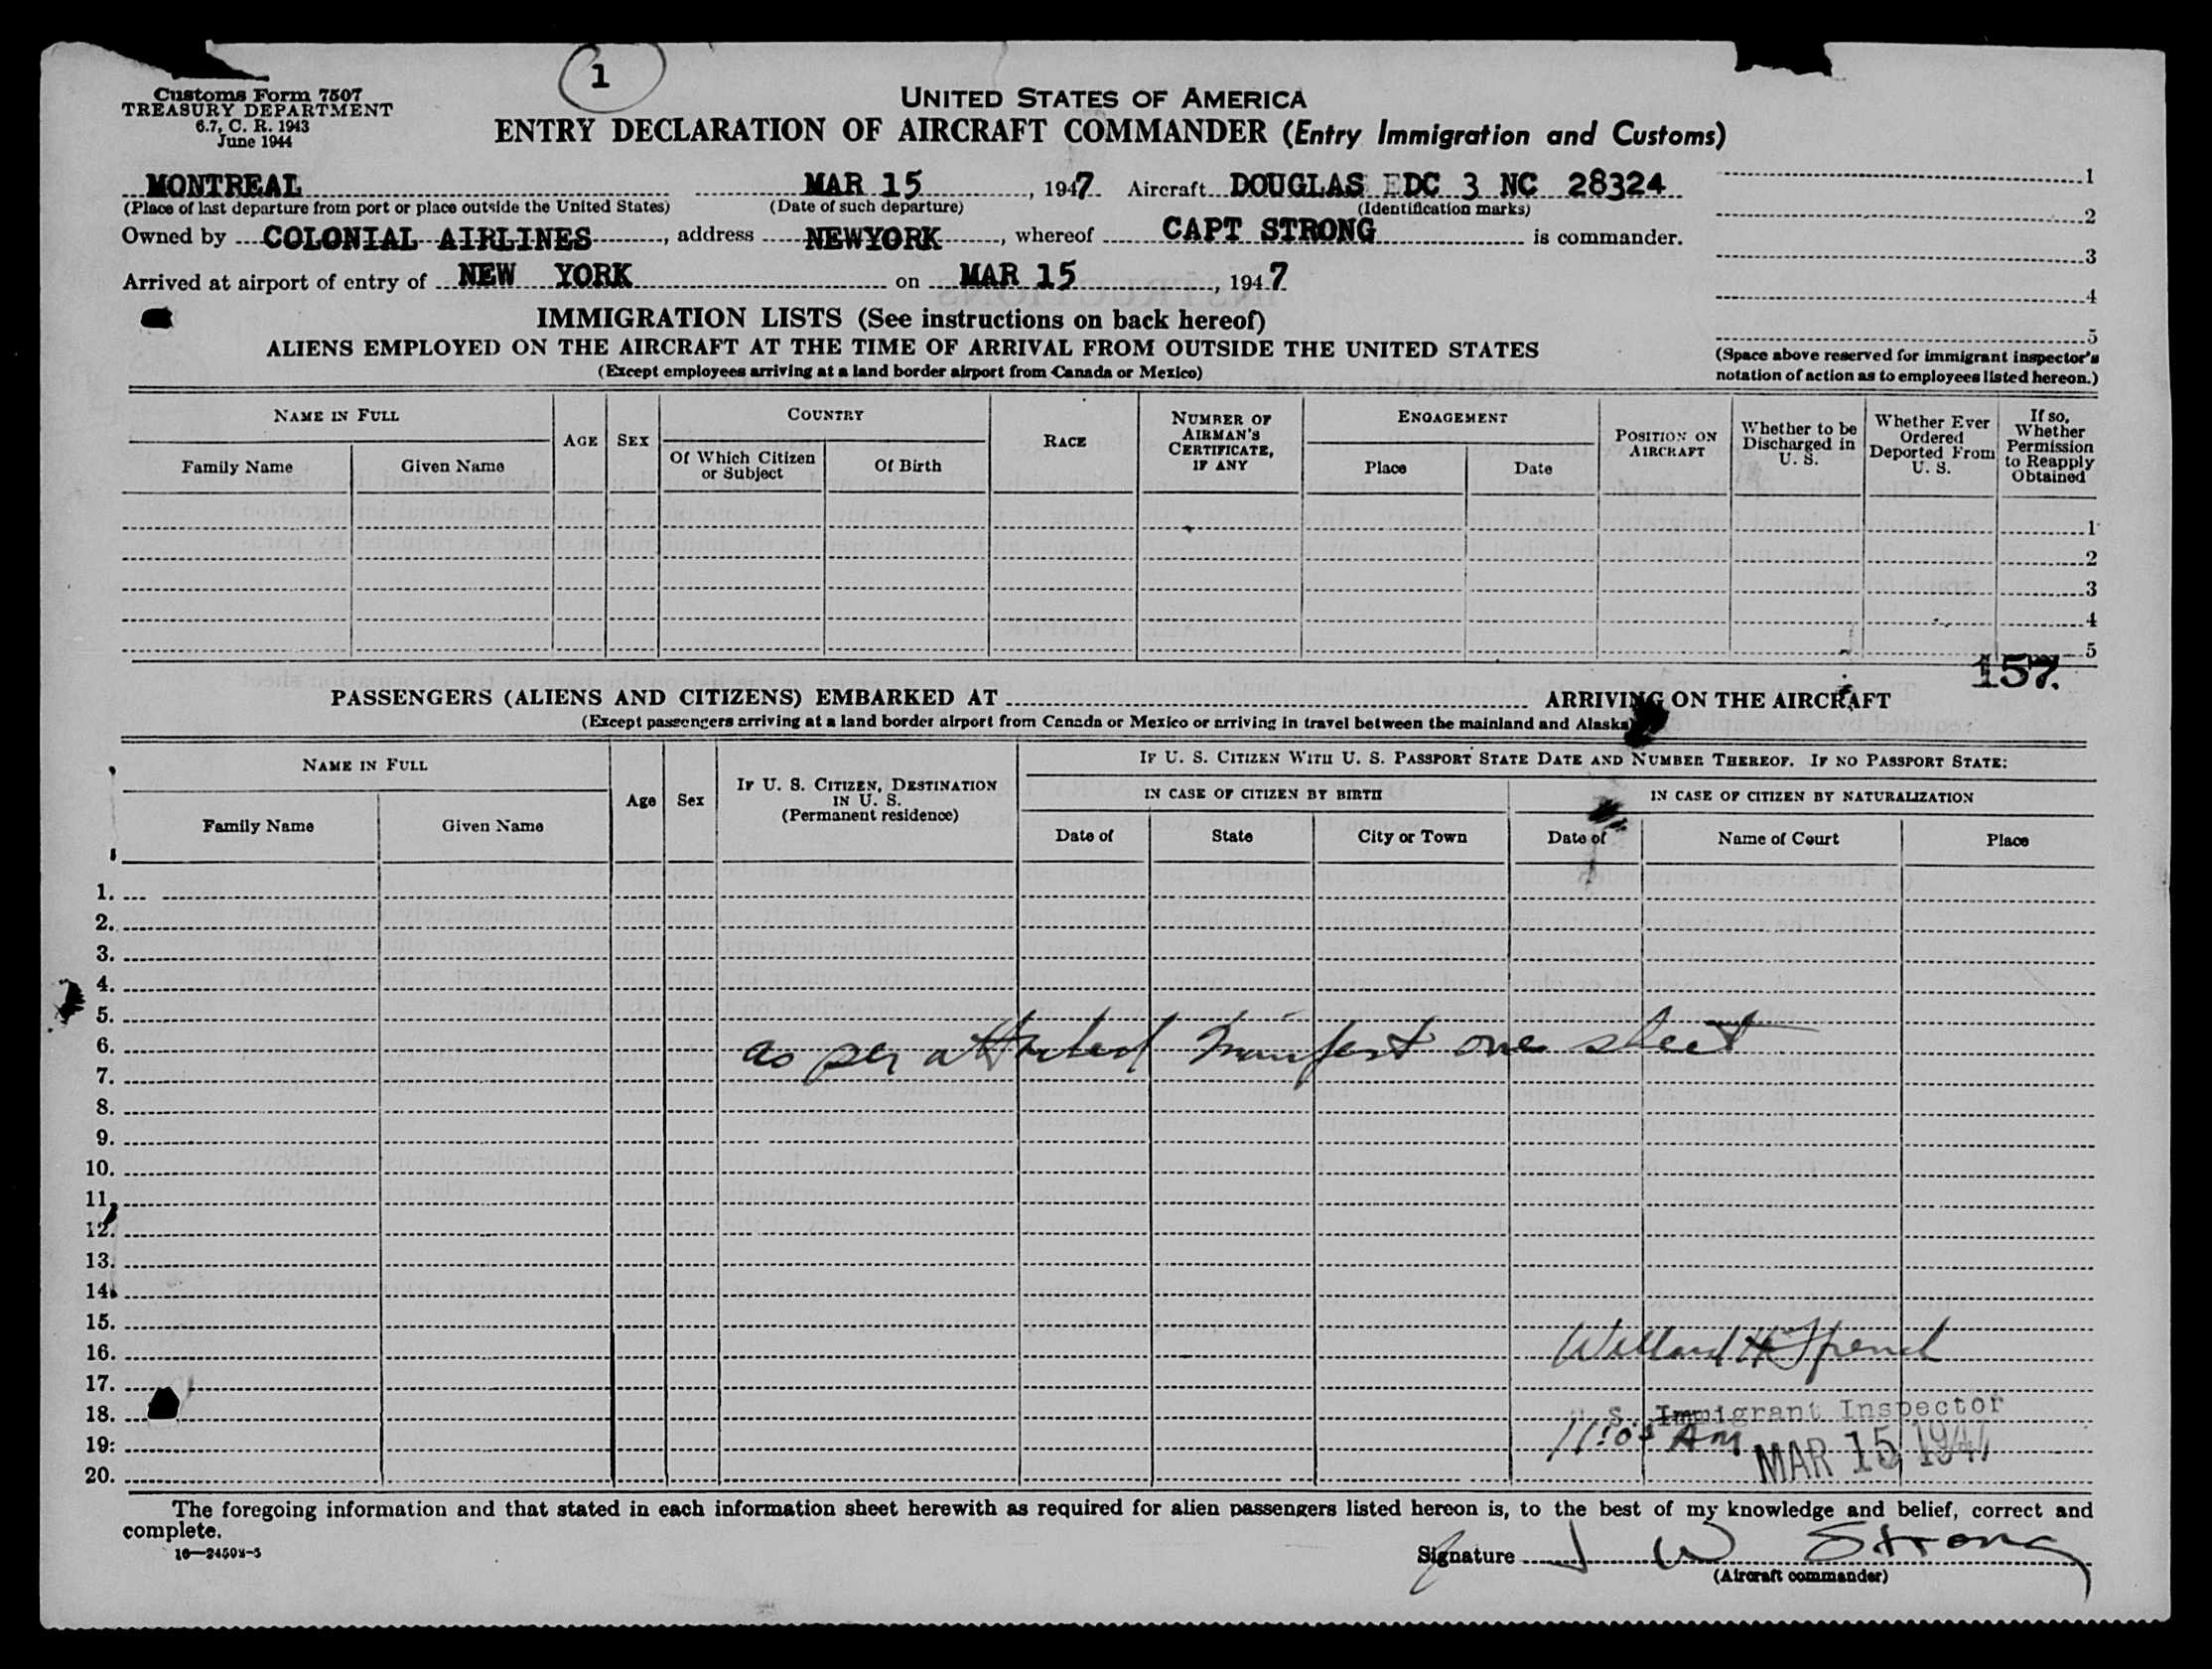 1
Customs Form 7507
TREASURY DEPARTMENT
6.7, C. R. 1943
June 1944
UNITED STATES OF AMERICA
ENTRY DECLARATION OF AIRCRAFT COMMANDER (Entry Immigration and Customs)
MONTREAL MAR 15, 1947. Aircraft DOUGLAS DC 3 NC 28324
(Place of last departure from port or place outside the United States) (Date of such departure) (Identification marks)
Owned by COLONIAL AIRLINES, address NEWYORK, whereof CAPT STRONG is commander.
Arrived at airport of entry of NEW YORK on MAR 15, 1947
1
2
3
4
5
(Space above reserved for immigrant inspector's
notation of action as to employees listed hereon.)
IMMIGRATION LISTS (See instructions on back hereof)
ALIENS EMPLOYED ON THE AIRCRAFT AT THE TIME OF ARRIVAL FROM OUTSIDE THE UNITED STATES
(Except employees arriving at a land border airport from Canada or Mexico)
NAME IN FULL
Family Name Given Name
AGE SEX
COUNTRY
Of Which Citizen
or Subject
Of Birth
RACE
NUMBER OF
AIRMAN'S
CERTIFICATE,
IF ANY
ENGAGEMENT
Place Date
POSITION ON
AIRCRAFT
Whether to be
Discharged in
U. S.
Whether Ever
Ordered
Deported From
U. S.
If so,
Whether
Permission
to Reapply
Obtained
1
2
3
4
5
157.
PASSENGERS (ALIENS AND CITIZENS) EMBARKED AT ARRIVING ON THE AIRCRAFT
(Except passengers arriving at a land border airport from Canada or Mexico or arriving in travel between the mainland and Alaska)
NAME IN FULL
Family Name Given Name
Age Sex
IF U. S. CITIZEN, DESTINATION
IN U. S.
(Permanent residence)
IF U. S. CITIZEN WITH U. S. PASSPORT STATE DATE AND NUMBER THEREOF. IF NO PASSPORT STATE:
IN CASE OF CITIZEN BY BIRTH IN CASE OF CITIZEN BY NATURALIZATION
Date of State City or Town Date of Name of Court Place
1.
2.
3.
4.
5.
6. as per attached Manifest one sheet
7.
8.
9.
10.
11.
12.
13.
14.
15.
16. Willard H
17.
18. U. S. Immigrant Inspector
19. 11:05 AM MAR 15 1947
20.
The foregoing information and that stated in each information sheet herewith as required for alien passengers listed hereon is, to the best of my knowledge and belief, correct and
complete.
16—24598-3
Signature J W Strong
(Aircraft commander)